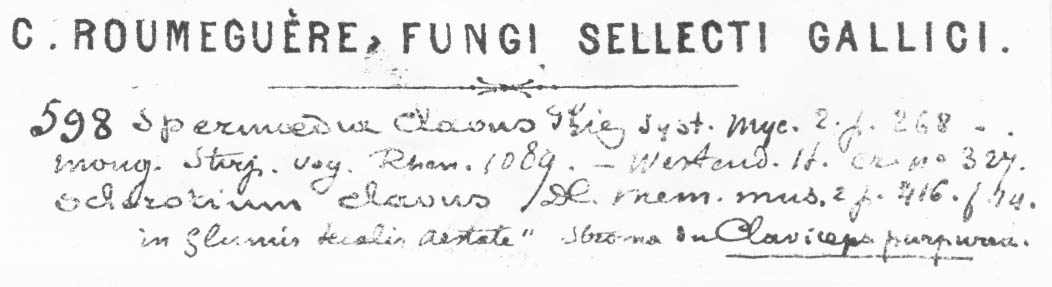 C. ROUMEGUÈRE, FUNGI SELLECTI GALLICI.
598 Spermoedia Clavus Fries Syst. Myc. 2. p. 268 -.
moug. Stirp. vog. Rhen. 1089. - Westend. H. cr. no 327.
Sclerotium clavus DC. mem. mus. 2 p. 416. f 14.
in glumis secalis aestate" Stroma du Claviceps purpurea.